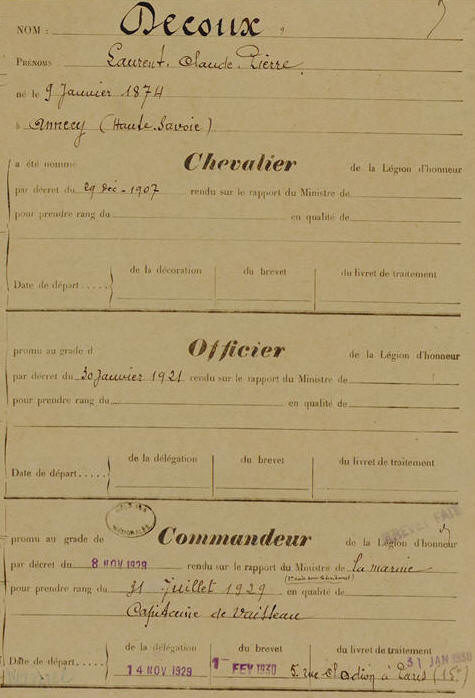 NOM : Decoux
PRÉNOMS Laurent. Claude. Pierre.
né le 9 Janvier 1874
à Annecy (Haute-Savoie)
a été nommé Chevalier de la Légion d'honneur
par décret du 29 déc. 1907 rendu sur le rapport du Ministre de
pour prendre rang du en qualité de
de la décoration du brevet du livret de traitement
Date de départ .....
promu au grade d Officier de la Légion d'honneur
par décret du 30 Janvier 1921 rendu sur le rapport du Ministre de
pour prendre rang du en qualité de
de la délégation du brevet du livret de traitement
Date de départ .....
NATIONALES
BREVET FAIT
promu au grade de Commandeur de la Légion d'honneur
par décret du 8 NOV 1929 rendu sur le rapport du Ministre de la marine
pour prendre rang du 31 Juillet 1929 en qualité de
Capitaine de Vaisseau
de la délégation du brevet du livret de traitement
Date de départ 14 NOV 1929 1 FEV 1930 31 JAN 1930
5, rue Clodion à Paris (15e)